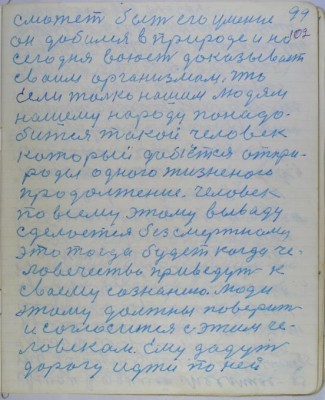 сможет быт его умение 99
он добился в природе и на 107
сегодня воюет доказывает
своим организмам. что
если толко нашим людям
нашему народу понадо-
бится такой человек
который добется от при-
роды одного жизненого
продолжение. человек
по всему этому вываду
сделоется безсмертному
это тогда будет когда че-
ловечество приведут к
своему сознанию. люди
этому должны поверит
и согласится с этим че-
ловекам. Ему дадут
дорогу идти по ней